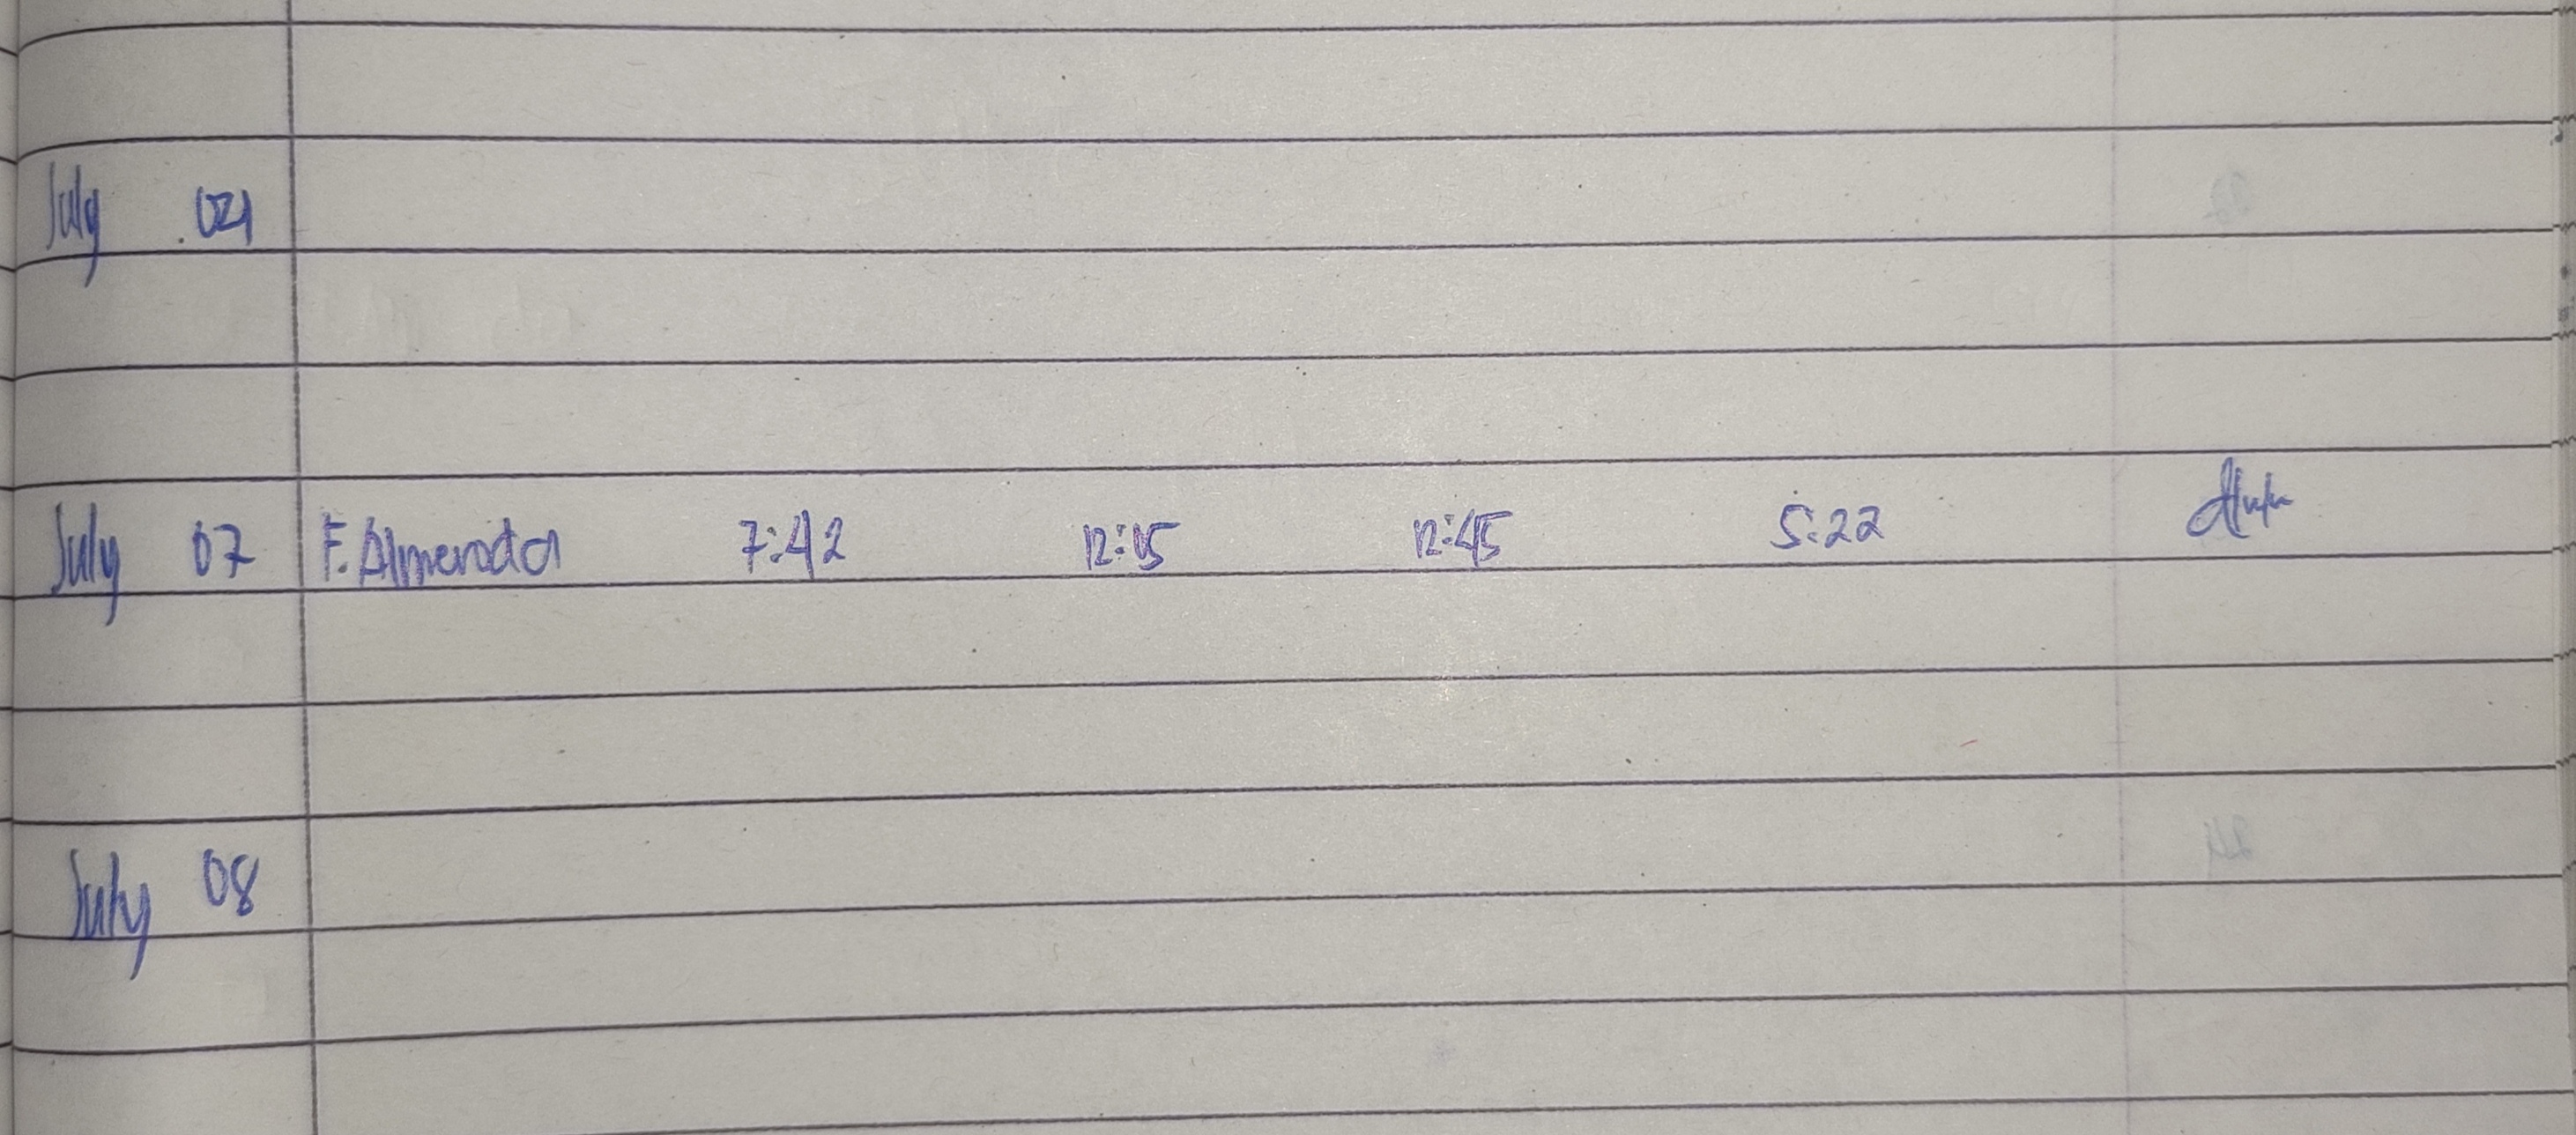 July 04
July 07 F. Almendra 7:42 12:15 12:45 5:22
July 08